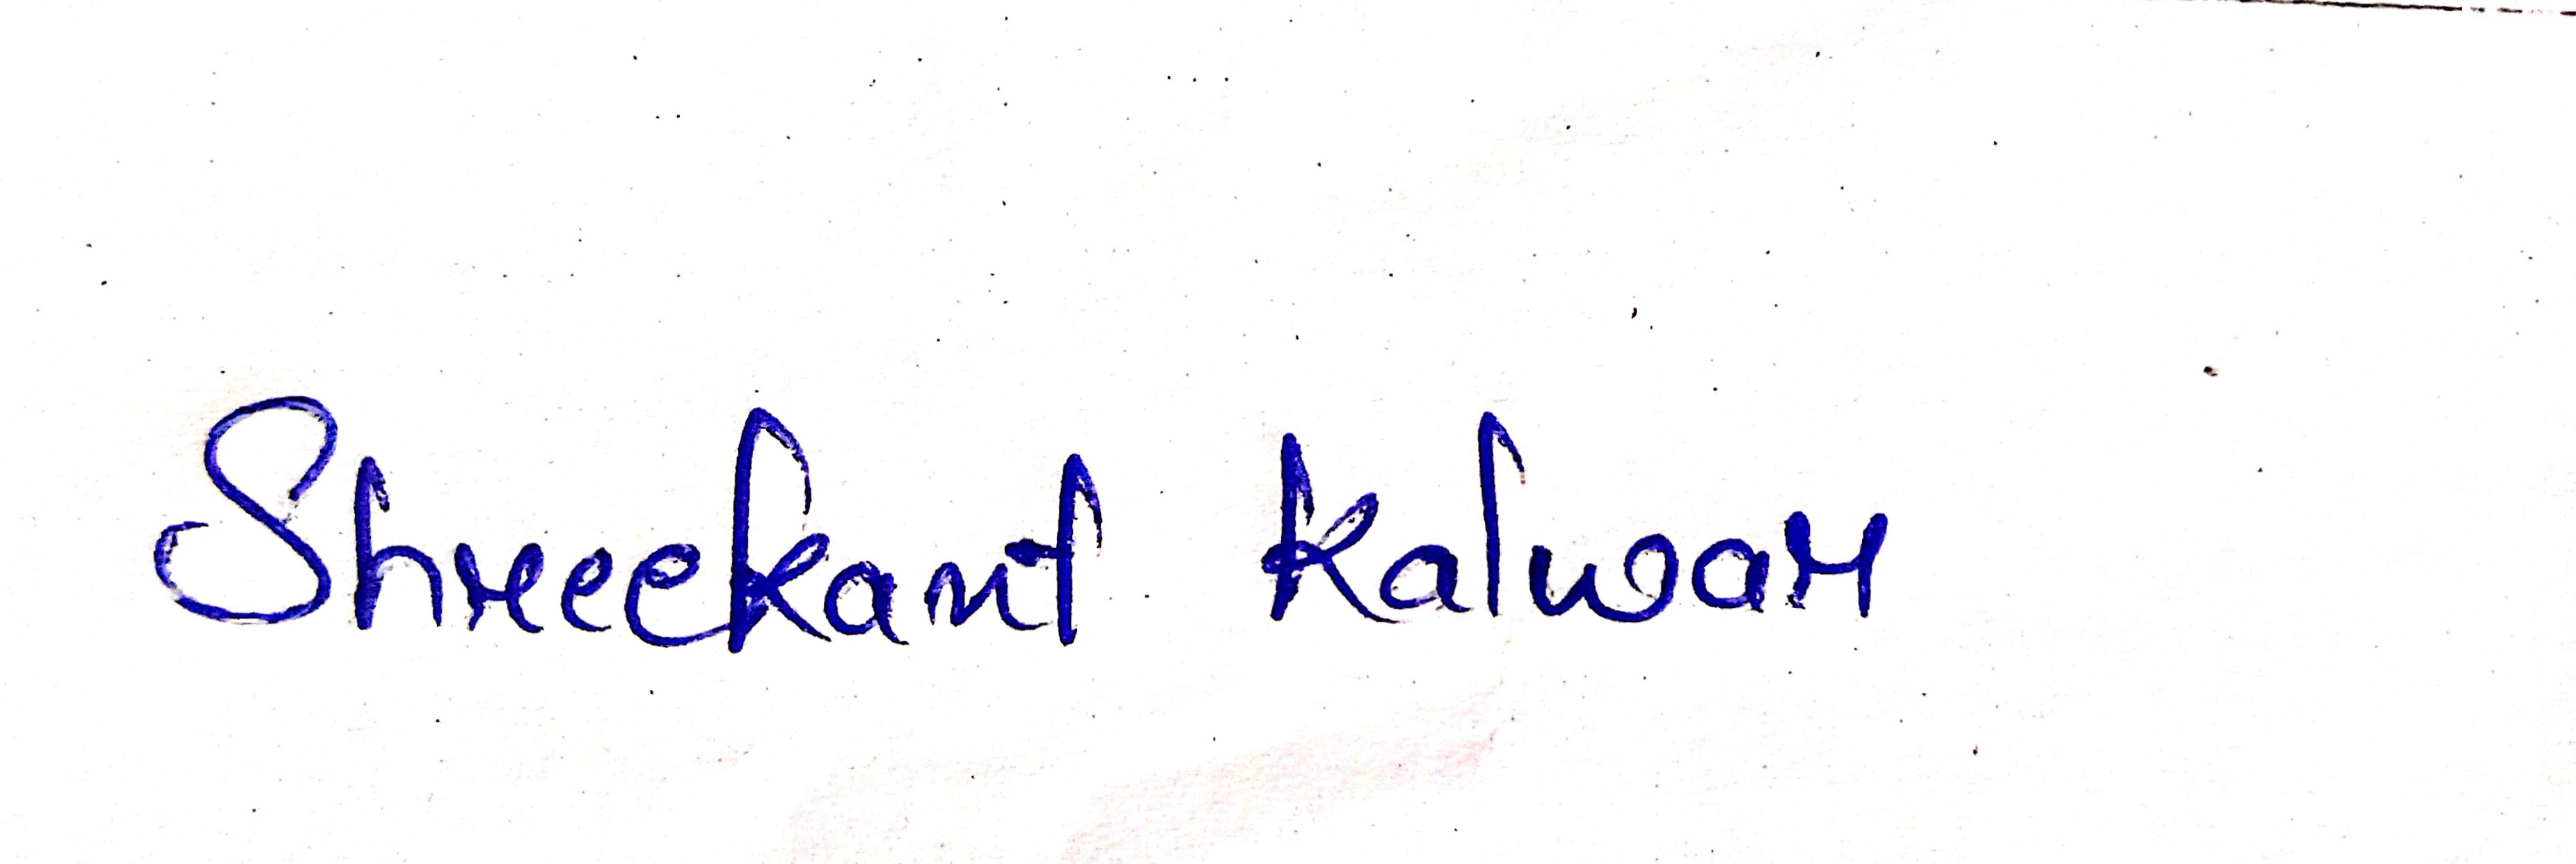 Shreeekant Kalwar